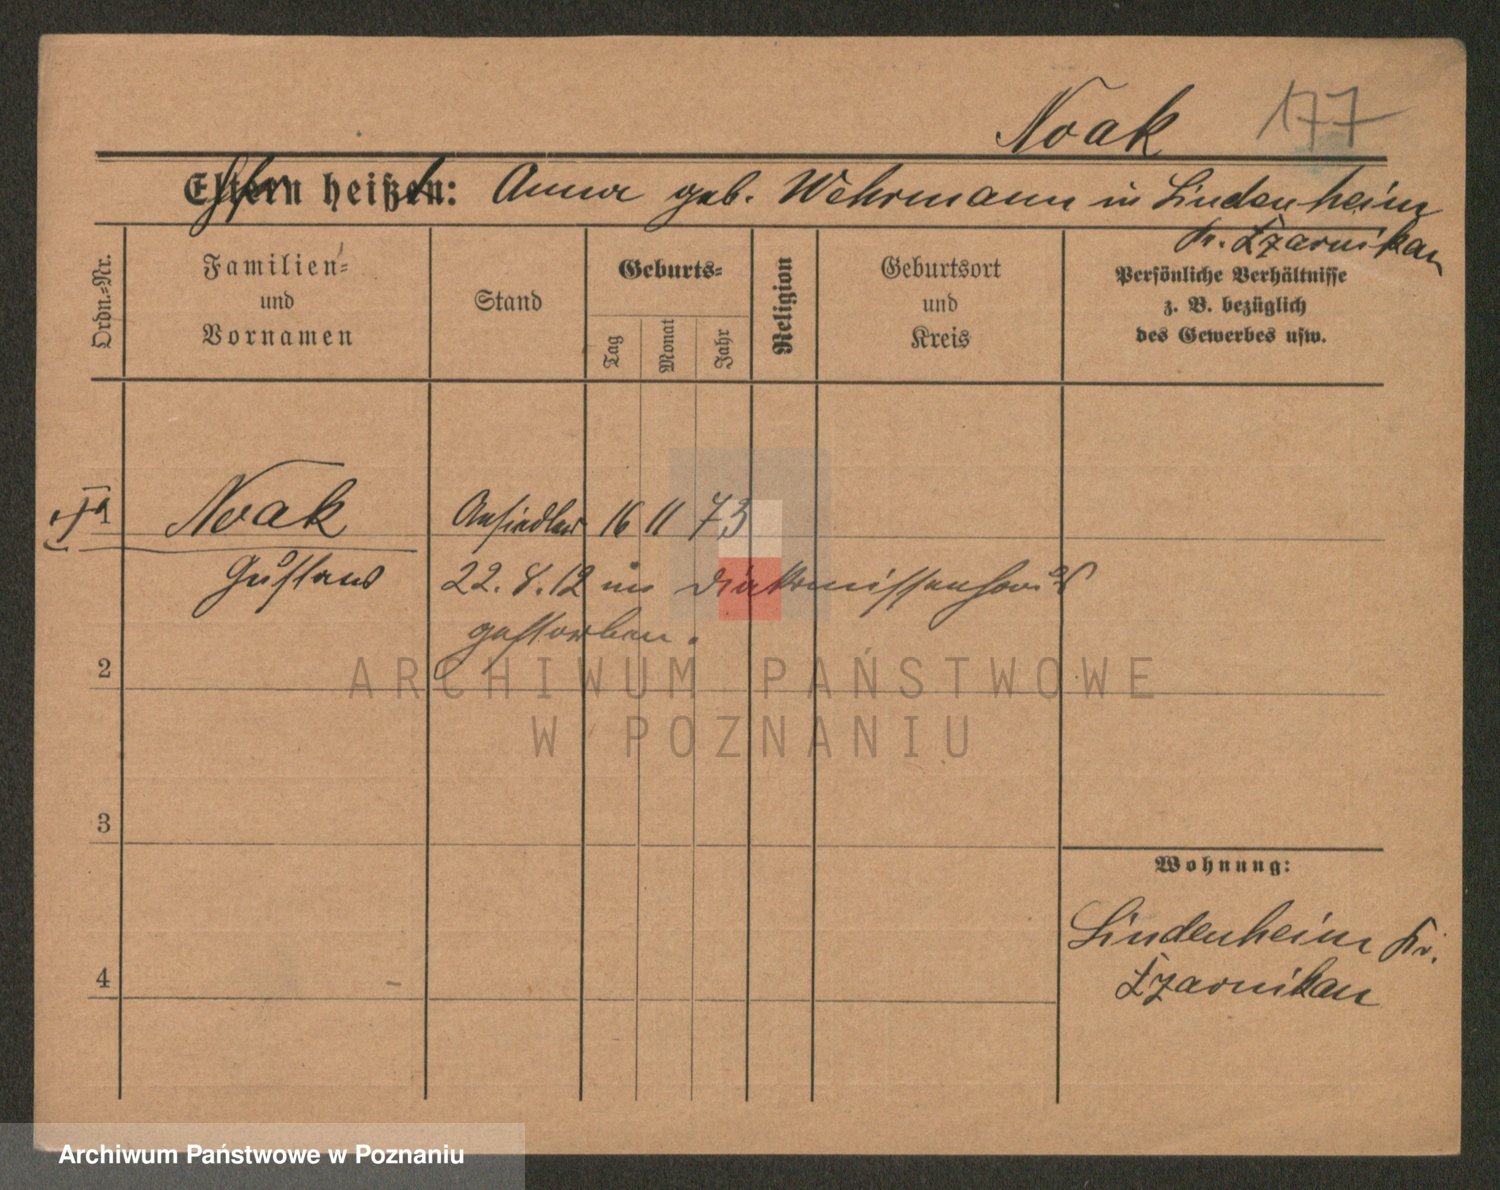 Noak 177
Eltern heißen: Anna geb. Wehrmann in Lindenheim
Kr. Czarnikau
Ordn.=Nr.
Familien=
und
Vornamen
Stand
Geburts=
Tag
Monat
Jahr
Religion
Geburtsort
und
Kreis
Persönliche Verhältnisse
z. B. bezüglich
des Gewerbes usw.
1 Noak Ansiedler 16 11 73
Gustav 22. 8. 12 im Diakonissenhaus
gestorben.
2
3
4
Wohnung:
Lindenheim Kr.
Czarnikau
ARCHIWUM PAŃSTWOWE
W POZNANIU
Archiwum Państwowe w Poznaniu